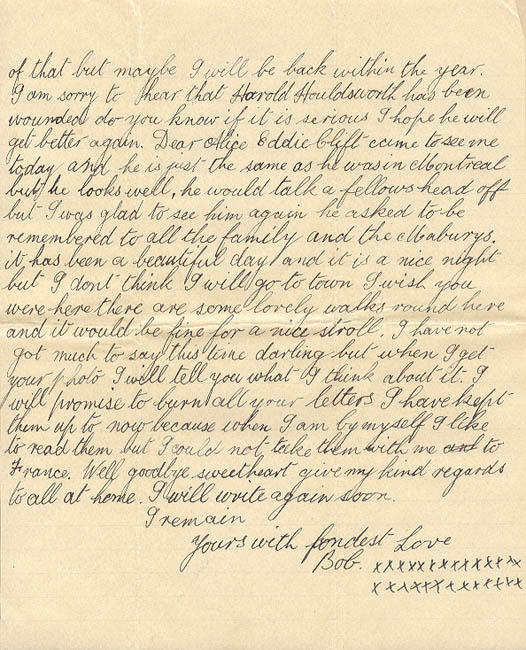 of that but maybe I will be back within the year.
I am sorry to hear that Harold Houldsworth has been
wounded do you know if it is serious I hope he will
get better again. Dear Alice Eddie Clift came to see me
today and he is just the same as he was in Montreal
but he looks well, he would talk a fellows head off
but I was glad to see him again he asked to be
remembered to all the family and the Maburys.
it has been a beautiful day and it is a nice night
but I dont think I will go to town I wish you
were here there are some lovely walks round here
and it would be fine for a nice stroll. I have not
got much to say this time darling but when I get
your photo I will tell you what I think about it. I
will promise to burn all your letters I have kept
them up to now because when I am by myself I like
to read them but I could not take them with me and to
France. Well goodbye sweetheart give my kind regards
to all at home. I will write again soon.
I remain
Yours with fondest Love
Bob. xxxxxxxxxxxxxx
xxxxxxxxxxxxxx